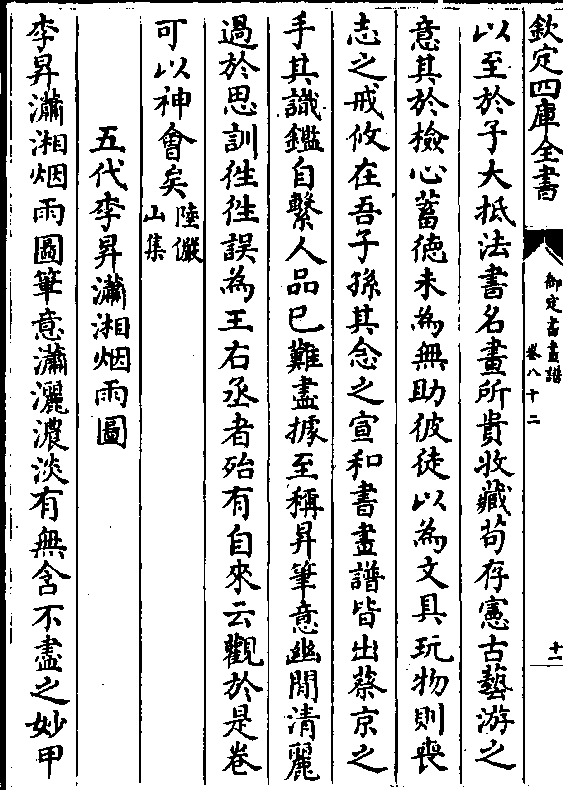 欽定四庫全書
御定書畫譜
卷八十二
十一
以至於子大抵法書名畫所貴收藏苟存憲古藝游之
意其於檢心蓄徳未為無助彼徒以為文具玩物則喪
志之戒攸在吾子孫其念之宣和書畫譜皆出蔡京之
手其識鑑自繫人品已難盡據至稱昇筆意幽閒清麗
過於思訓徃徃誤為王右丞者殆有自來云觀於是卷
可以神會矣陸儼山集
五代李昇瀟湘烟雨圖
李昇瀟湘烟雨圖筆意瀟灑濃淡有無含不盡之妙甲